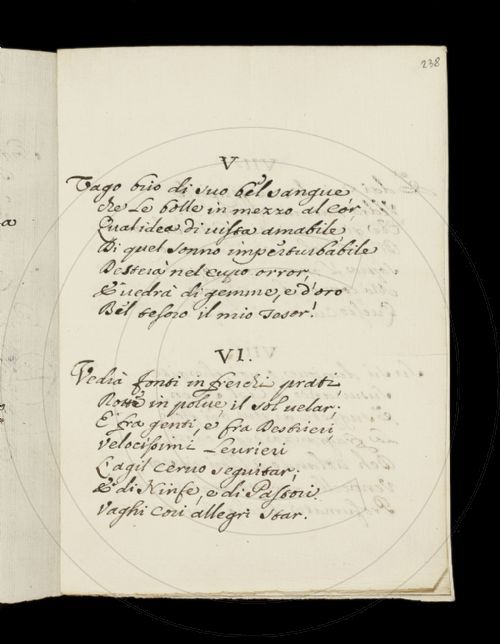 238
V
Vago brio di suo bel sangue
che Le bolle in mezzo al Cor
Qual idea di vista amabile
Di quel Sonno imperturbabile
Desterà nel cupo orror,
E vedrà di gemme, e d'oro
Bel tesoro il mio Tesor!
VI.
Vedrà fonti in freschi prati,
Rotte in polve il Sol velar;
E fra genti, e fra Destrieri
Velocissimi Levrieri
L'agil Cervo seguitar;
E di Ninfe, e di Pastori
Vaghi Cori allegri star.